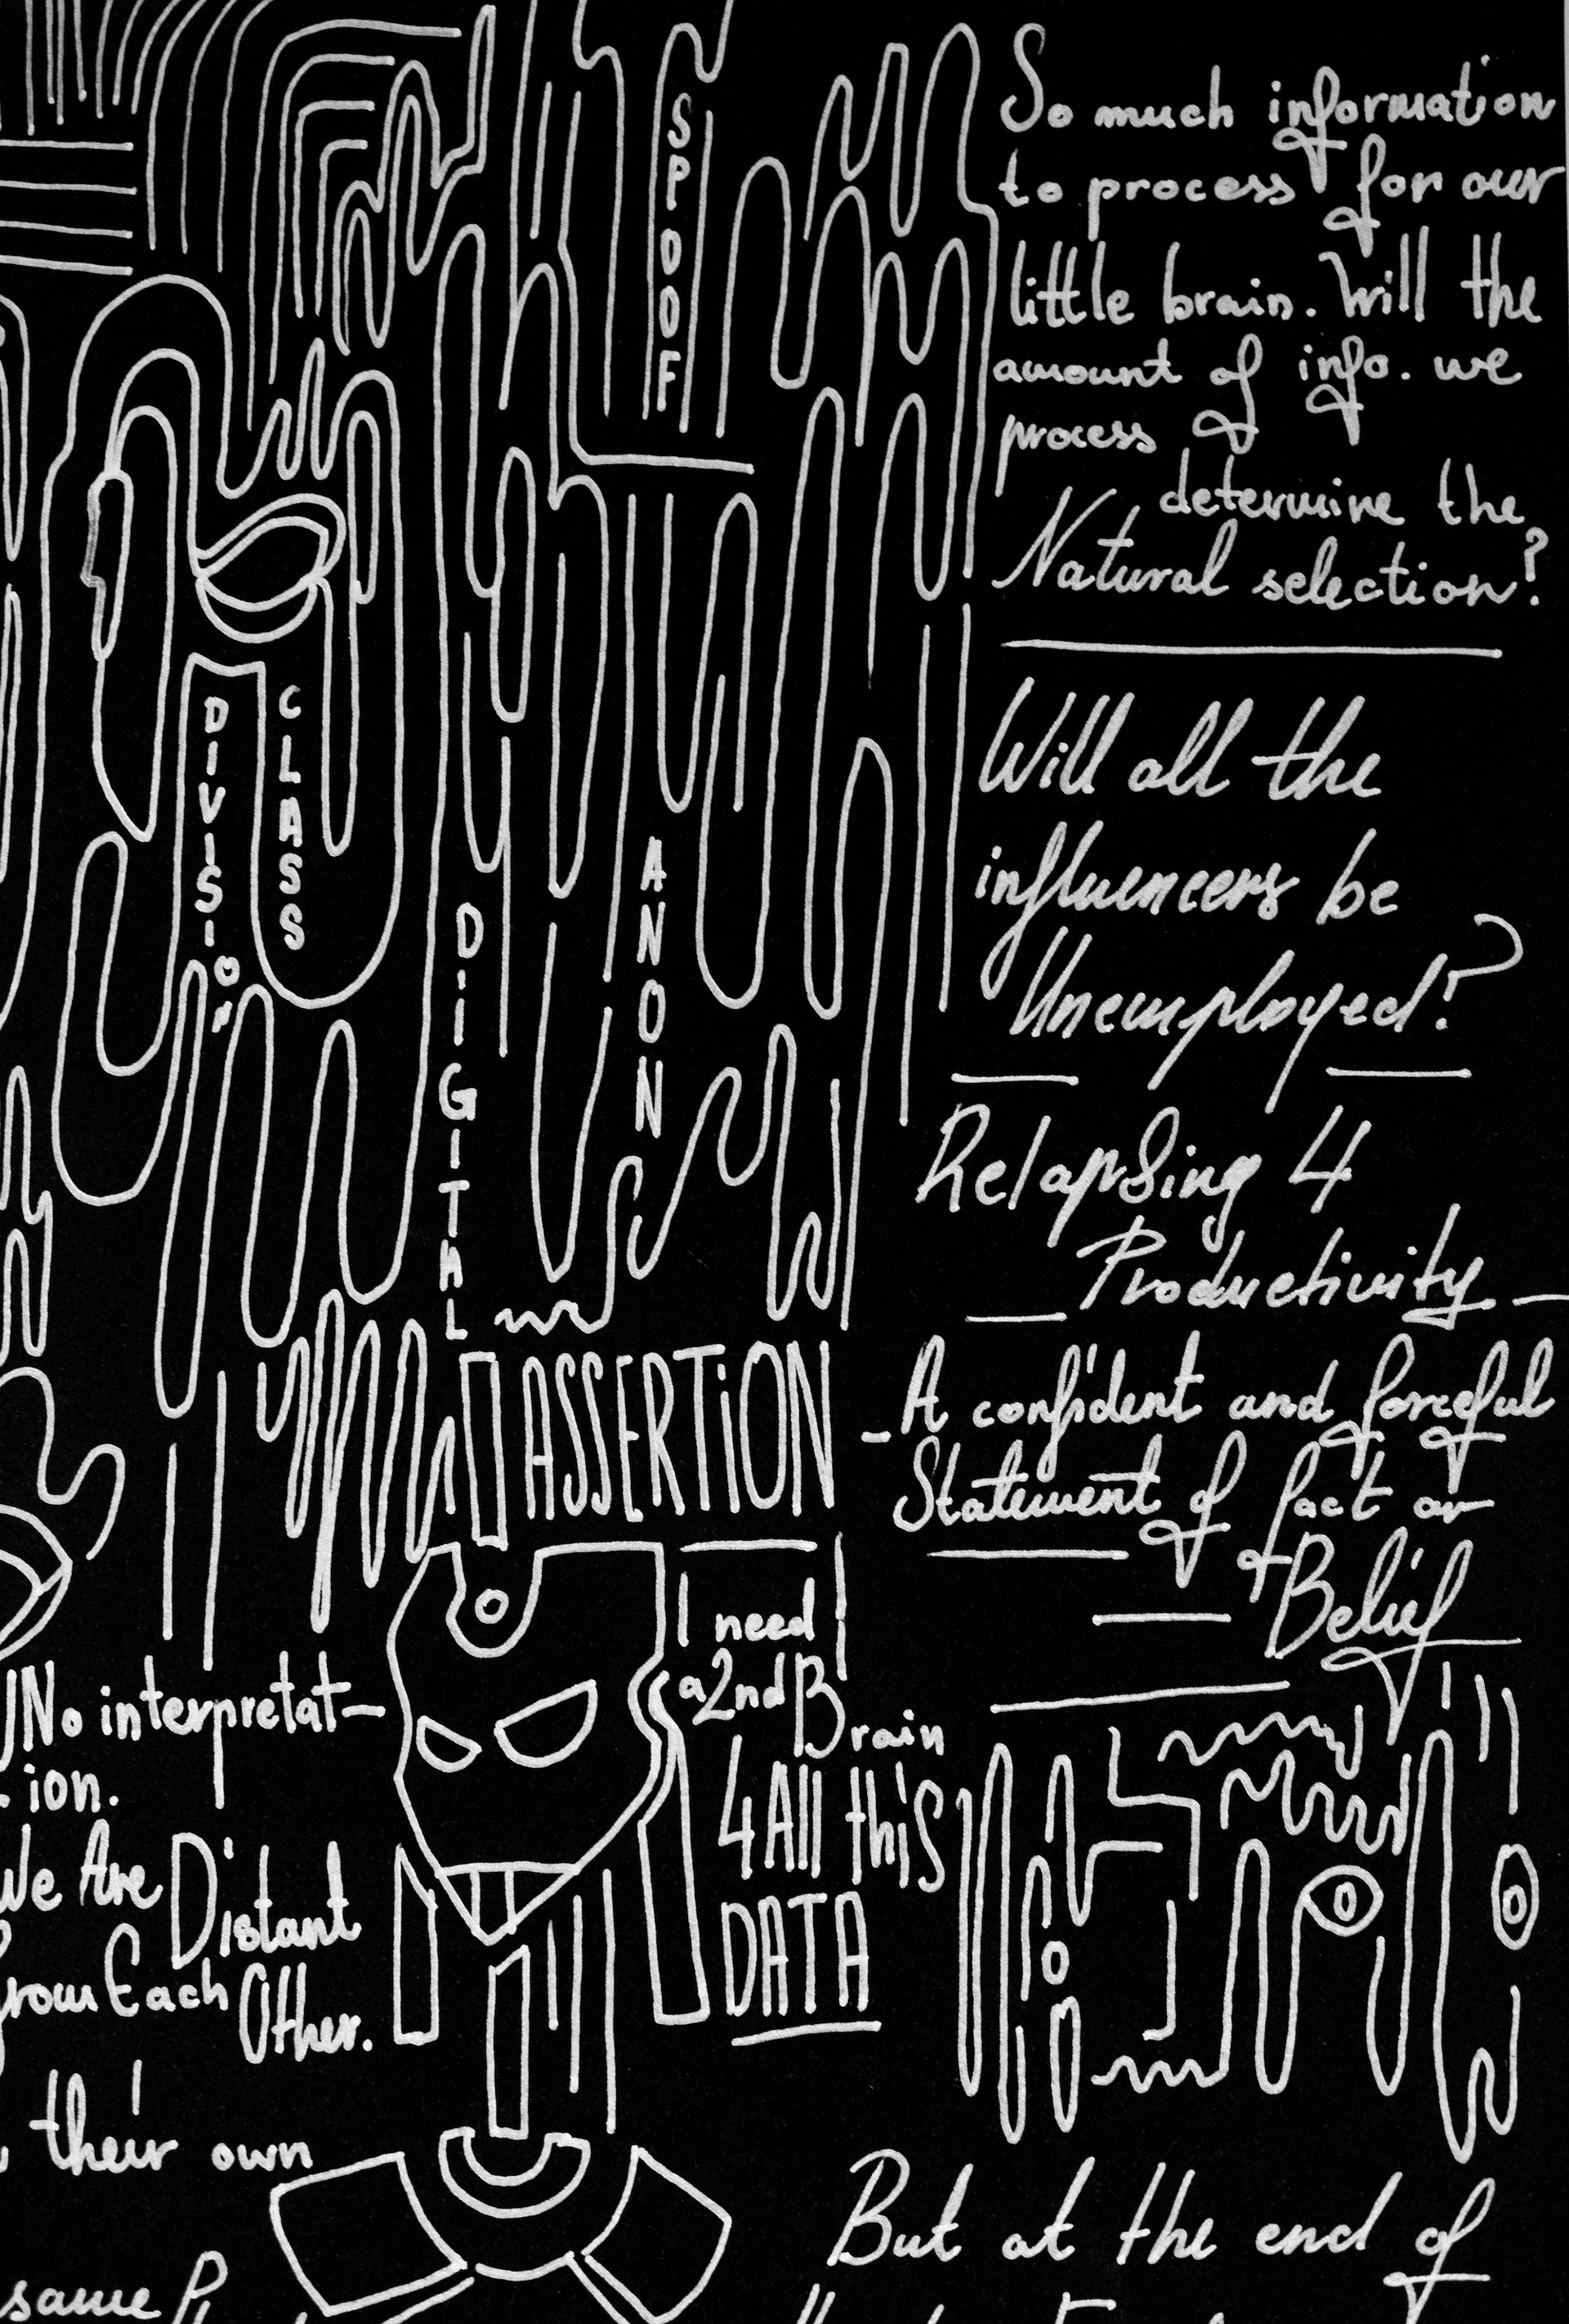 SPOOF
So much information
to process for our
little brain. Will the
amount of info. we
process
determine the
Natural selection?
DIVISION
CLASS
Will all the
influencers be
Unemployed?
DIGITAL
ANON
Relapsing 4
Productivity
ASSERTION
- A confident and forceful
Statement of fact or
Belief
I need
a 2nd Brain
4 All this
DATA
No interpretat-
ion.
We Are Distant
from Each Other.
their own
same
But at the end of